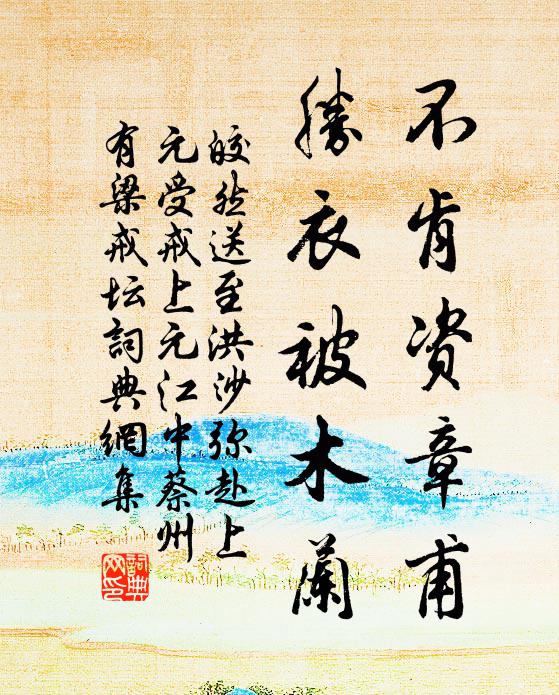 不肯资章甫
勝衣被木蘭
皎然送至洪沙弥赴上
元受戒上元江中蔡州
有梁戒坛詞典網集
詞典网印